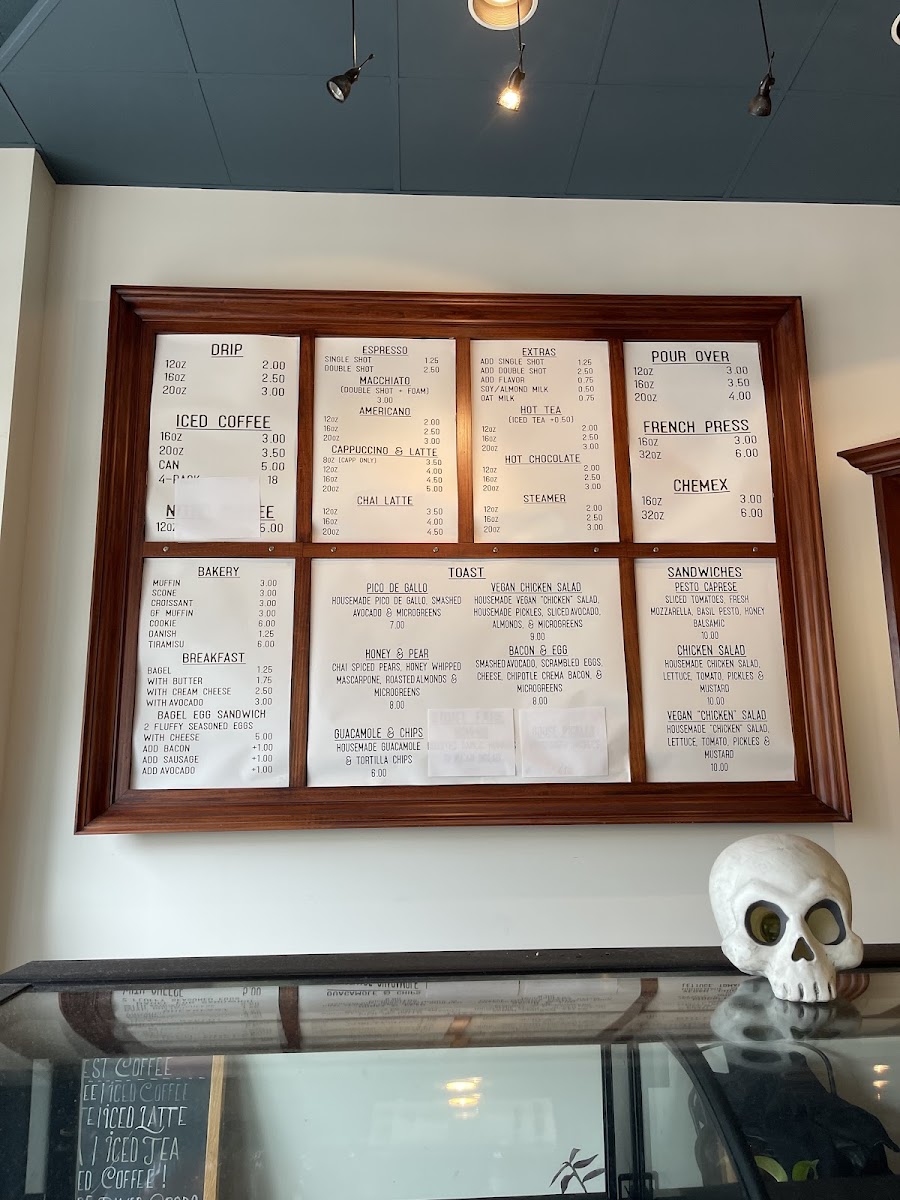 DRIP
12OZ 2.00
16OZ 2.50
20OZ 3.00
ICED COFFEE
16OZ 3.00
20OZ 3.50
CAN 5.00
4-PACK 18
12OZ 5.00
ESPRESSO
SINGLE SHOT 1.25
DOUBLE SHOT 2.50
MACCHIATO
(DOUBLE SHOT + FOAM)
3.00
AMERICANO
12OZ 2.00
16OZ 2.50
20OZ 3.00
CAPPUCCINO & LATTE
8OZ (CAPP ONLY) 3.50
12OZ 4.00
16OZ 4.50
20OZ 5.00
CHAI LATTE
12OZ 3.50
16OZ 4.00
20OZ 4.50
EXTRAS
ADD SINGLE SHOT 1.25
ADD DOUBLE SHOT 2.50
ADD FLAVOR 0.75
SOY/ALMOND MILK 0.50
OAT MILK 0.75
HOT TEA
(ICED TEA +0.50)
12OZ 2.00
16OZ 2.50
20OZ 3.00
HOT CHOCOLATE
12OZ 2.00
16OZ 2.50
20OZ 3.00
STEAMER
12OZ 2.00
16OZ 2.50
20OZ 3.00
POUR OVER
12OZ 3.00
16OZ 3.50
20OZ 4.00
FRENCH PRESS
16OZ 3.00
32OZ 6.00
CHEMEX
16OZ 3.00
32OZ 6.00
BAKERY
MUFFIN 3.00
SCONE 3.00
CROISSANT 3.00
GF MUFFIN 3.00
COOKIE 6.00
DANISH 1.25
TIRAMISU 6.00
BREAKFAST
BAGEL 1.25
WITH BUTTER 1.75
WITH CREAM CHEESE 2.50
WITH AVOCADO 3.00
BAGEL EGG SANDWICH
2 FLUFFY SEASONED EGGS
WITH CHEESE 5.00
ADD BACON +1.00
ADD SAUSAGE +1.00
ADD AVOCADO +1.00
TOAST
PICO DE GALLO
HOUSEMADE PICO DE GALLO, SMASHED
AVOCADO & MICROGREENS
7.00
HONEY & PEAR
CHAI SPICED PEARS, HONEY WHIPPED
MASCARPONE, ROASTED ALMONDS &
MICROGREENS
8.00
GUACAMOLE & CHIPS
HOUSEMADE GUACAMOLE
& TORTILLA CHIPS
6.00
VEGAN CHICKEN SALAD
HOUSEMADE VEGAN "CHICKEN" SALAD,
HOUSEMADE PICKLES, SLICED AVOCADO,
ALMONDS, & MICROGREENS
9.00
BACON & EGG
SMASHED AVOCADO, SCRAMBLED EGGS,
CHEESE, CHIPOTLE CREMA BACON, &
MICROGREENS
8.00
SANDWICHES
PESTO CAPRESE
SLICED TOMATOES, FRESH
MOZZARELLA, BASIL PESTO, HONEY
BALSAMIC
10.00
CHICKEN SALAD
HOUSEMADE CHICKEN SALAD,
LETTUCE, TOMATO, PICKLES &
MUSTARD
10.00
VEGAN "CHICKEN" SALAD
HOUSEMADE "CHICKEN" SALAD,
LETTUCE, TOMATO, PICKLES &
MUSTARD
10.00
EST COFFEE
ICED COFFEE
ICED LATTE
ICED TEA
ED COFFEE!